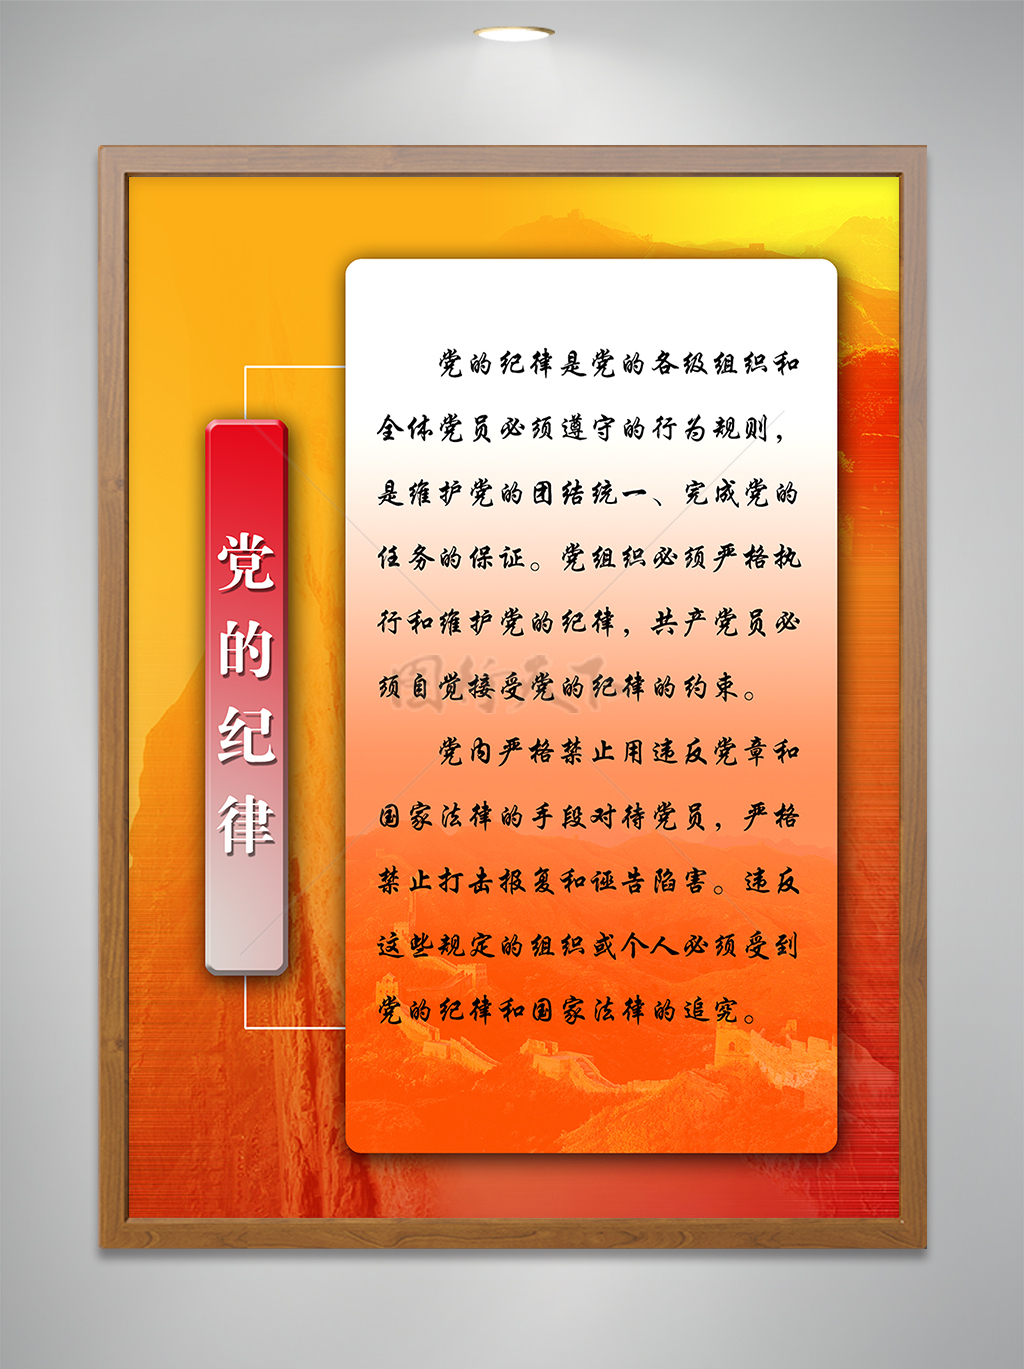 党的纪律
党的纪律是党的各级组织和
全体党员必须遵守的行为规则，
是维护党的团结统一、完成党的
任务的保证。党组织必须严格执
行和维护党的纪律，共产党员必
须自觉接受党的纪律的约束。
党内严格禁止用违反党章和
国家法律的手段对待党员，严格
禁止打击报复和诬告陷害。违反
这些规定的组织或个人必须受到
党的纪律和国家法律的追究。
图行天下